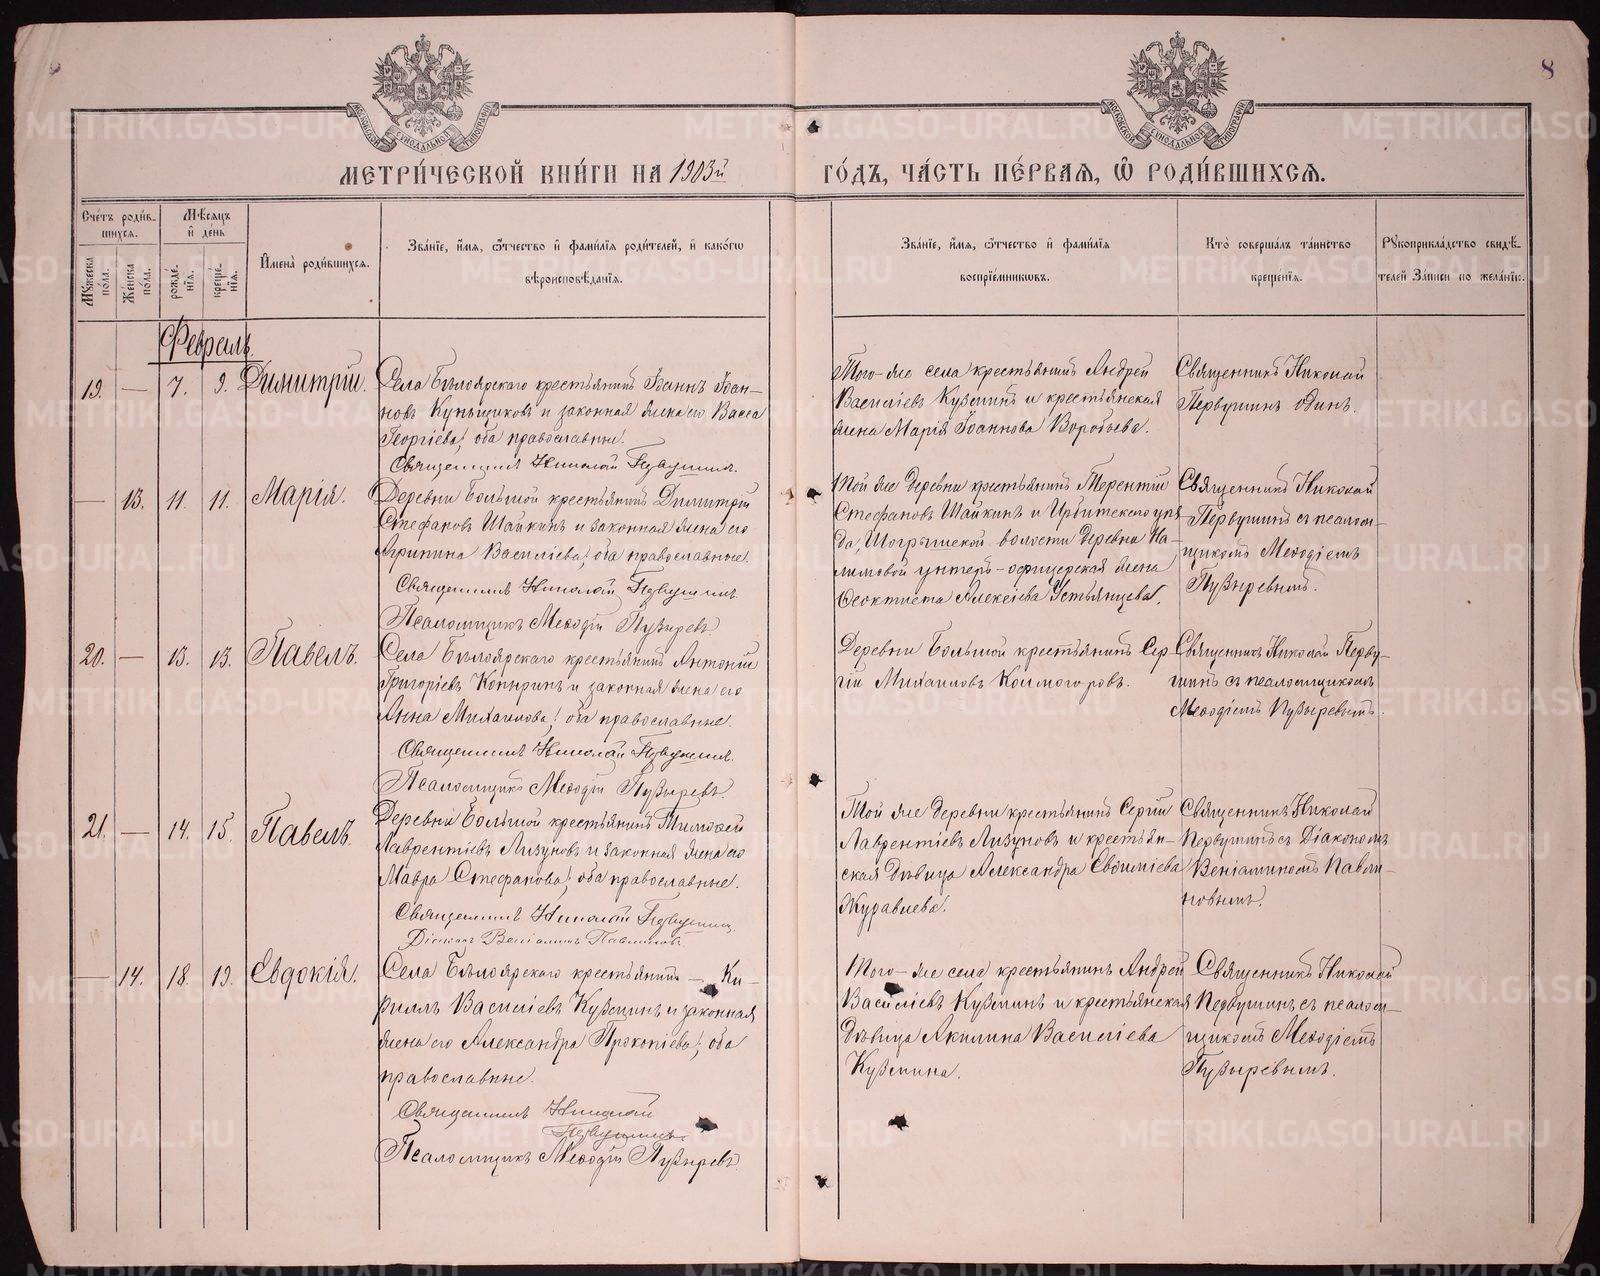 8
МОСКОВСКОЙ СѴНОДАЛЬНОЙ ТИПОГРАФІИ
МОСКОВСКОЙ СѴНОДАЛЬНОЙ ТИПОГРАФІИ
МЕТРИ́ЧЕСКОЙ КНИ́ГИ НА 1903й ГО́ДЪ, ЧА́СТЬ ПЕ́РВАЯ, Ѡ РОДИ́ВШИХСЯ.
Сче́тъ роди́в-
шихся.
Мꙋ́жеска по́ла.
Же́нска по́ла.
Мѣ́сяцъ
и҆ де́нь
рожде́нїѧ.
креще́нїѧ.
И҆мена̀ роди́вшихся.
Зва́нїе, и҆́мѧ, ѻ҆́тчество и҆ фами́лїѧ роди́телей, и҆ како́гѡ
вѣроисповѣ́данїѧ.
Зва́нїе, и҆́мѧ, ѻ҆́тчество и҆ фами́лїѧ
воспрїе́мниковъ.
Кто̀ соверша́лъ та́инство
креще́нїѧ.
Рꙋкоприкла́дство свидѣ́-
телей за́писи по жела́нїю.
Февраль.
19. — 7. 9. Димитрій.
Села Бѣлоярскаго крестьянинъ Іоаннъ Іоан-
новъ Куньщиковъ и законная жена его Васса
Георгіева, оба православные.
Священникъ Николай Первушинъ.
Того-же села крестьянинъ Андрей
Василіевъ Кузминъ и крестьянская
жена Марія Іоаннова Воробьева.
Священникъ Николай
Первушинъ одинъ.
— 13. 11. 11. Марія.
Деревни Большой крестьянинъ Димитрій
Стефановъ Шайкинъ и законная жена его
Агрипина Василіева, оба православные.
Священникъ Николай Первушинъ.
Псаломщикъ Меѳодій Пузыревъ.
Той же деревни крестьянинъ Терентій
Стефановъ Шайкинъ и Ирбитскаго уѣз
да, Шогрышской волости деревни На-
лимовой унтеръ-офицерская жена
Ѳеоктиста Алексіева Устьянцева.
Священникъ Николай
Первушинъ съ псалом-
щикомъ Меѳодіемъ
Пузыревымъ.
20. — 13. 13. Павелъ.
Села Бѣлоярскаго крестьянинъ Антоній
Григоріевъ Копыринъ и законная жена его
Анна Михаилова, оба православные.
Священникъ Николай Первушинъ.
Псаломщикъ Меѳодій Пузыревъ.
Деревни Большой крестьянинъ Сер
гій Михаиловъ Колмогоровъ.
Священникъ Николай Перву-
шинъ съ псаломщикомъ
Меѳодіемъ Пузыревымъ.
21. — 14. 15. Павелъ.
Деревни Большой крестьянинъ Тимоѳей
Лаврентіевъ Лизуновъ и законная жена его
Мавра Стефанова, оба православные.
Священникъ Николай Первушинъ.
Діаконъ Веніаминъ Павлиновъ
Той же деревни крестьянинъ Сергій
Лаврентіевъ Лизуновъ и крестьян-
ская дѣвица Александра Евѳиміева
Журавлева.
Священникъ Николай
Первушинъ съ Діакономъ
Веніаминомъ Павли-
новымъ.
— 14. 18. 19. Евдокія.
Села Бѣлоярскаго крестьянинъ — Ки-
риллъ Василіевъ Кузминъ и законная
жена его Александра Прокопіева, оба
православные.
Священникъ Николай
Первушинъ.
Псаломщикъ Меѳодій Пузыревъ.
Того-же села крестьянинъ Андрей
Василіевъ Кузминъ и крестьянская
дѣвица Акилина Василіева
Кузмина.
Священникъ Николай
Первушинъ съ псалом-
щикомъ Меѳодіемъ
Пузыревымъ.
METRIKI.GASO-URAL.RU